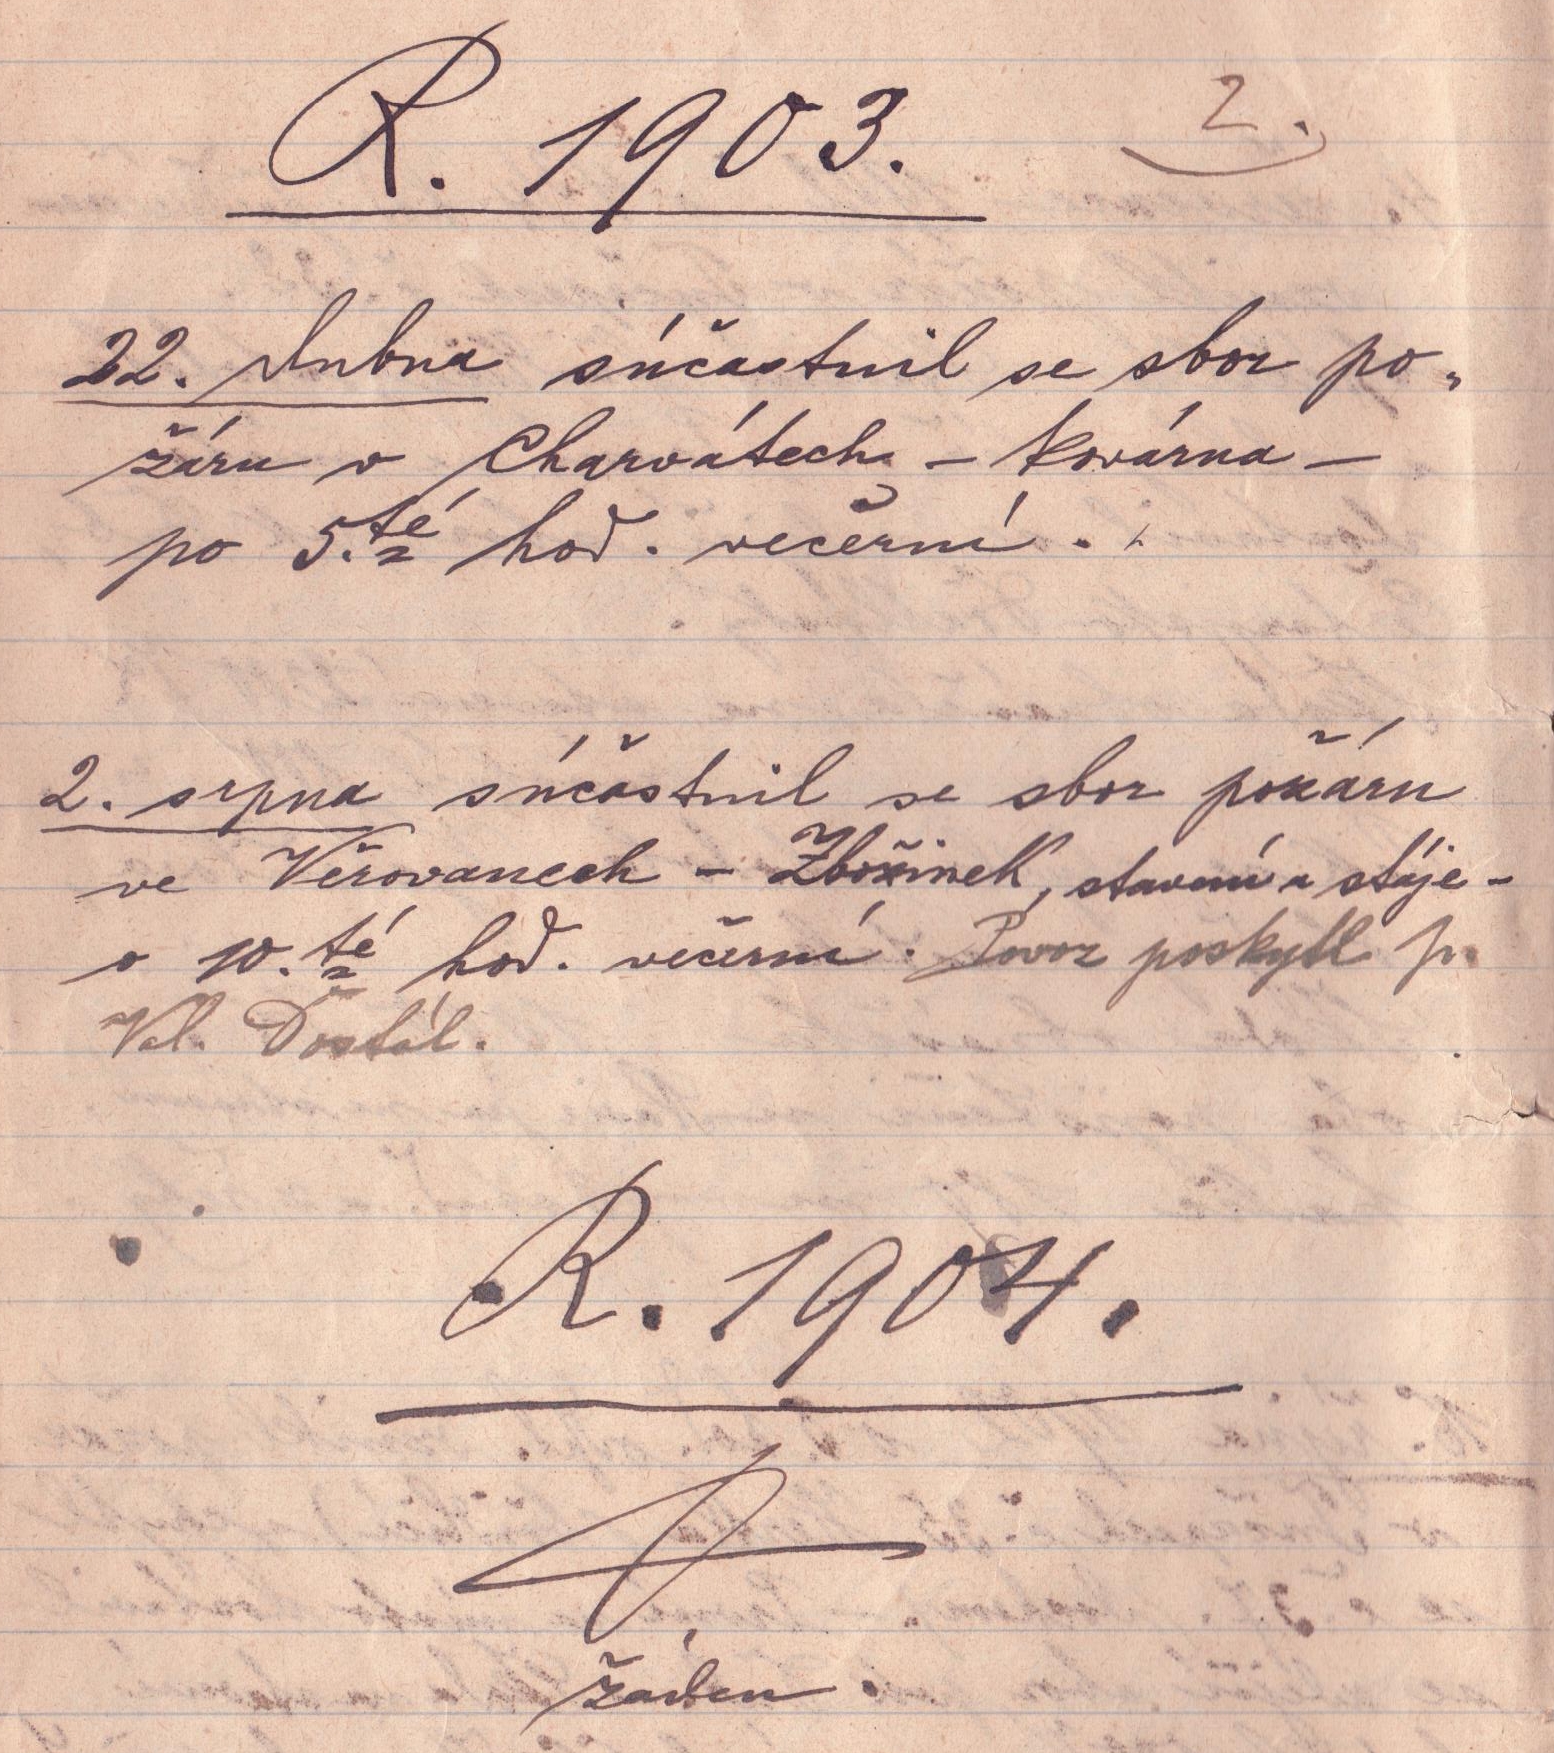 R. 1903.
2.
22. dubna súčastnil se sbor po„
žáru v Charvátech – kovárna –
po 5.té hod. večerní.
2. srpna súčastnil se sbor požáru
ve Věrovanech – Zbožínek, stavení a stáje –
o 10.té hod. večerní. Povoz poskytl p.
Val. Dostál.
R. 1904.
žáden.